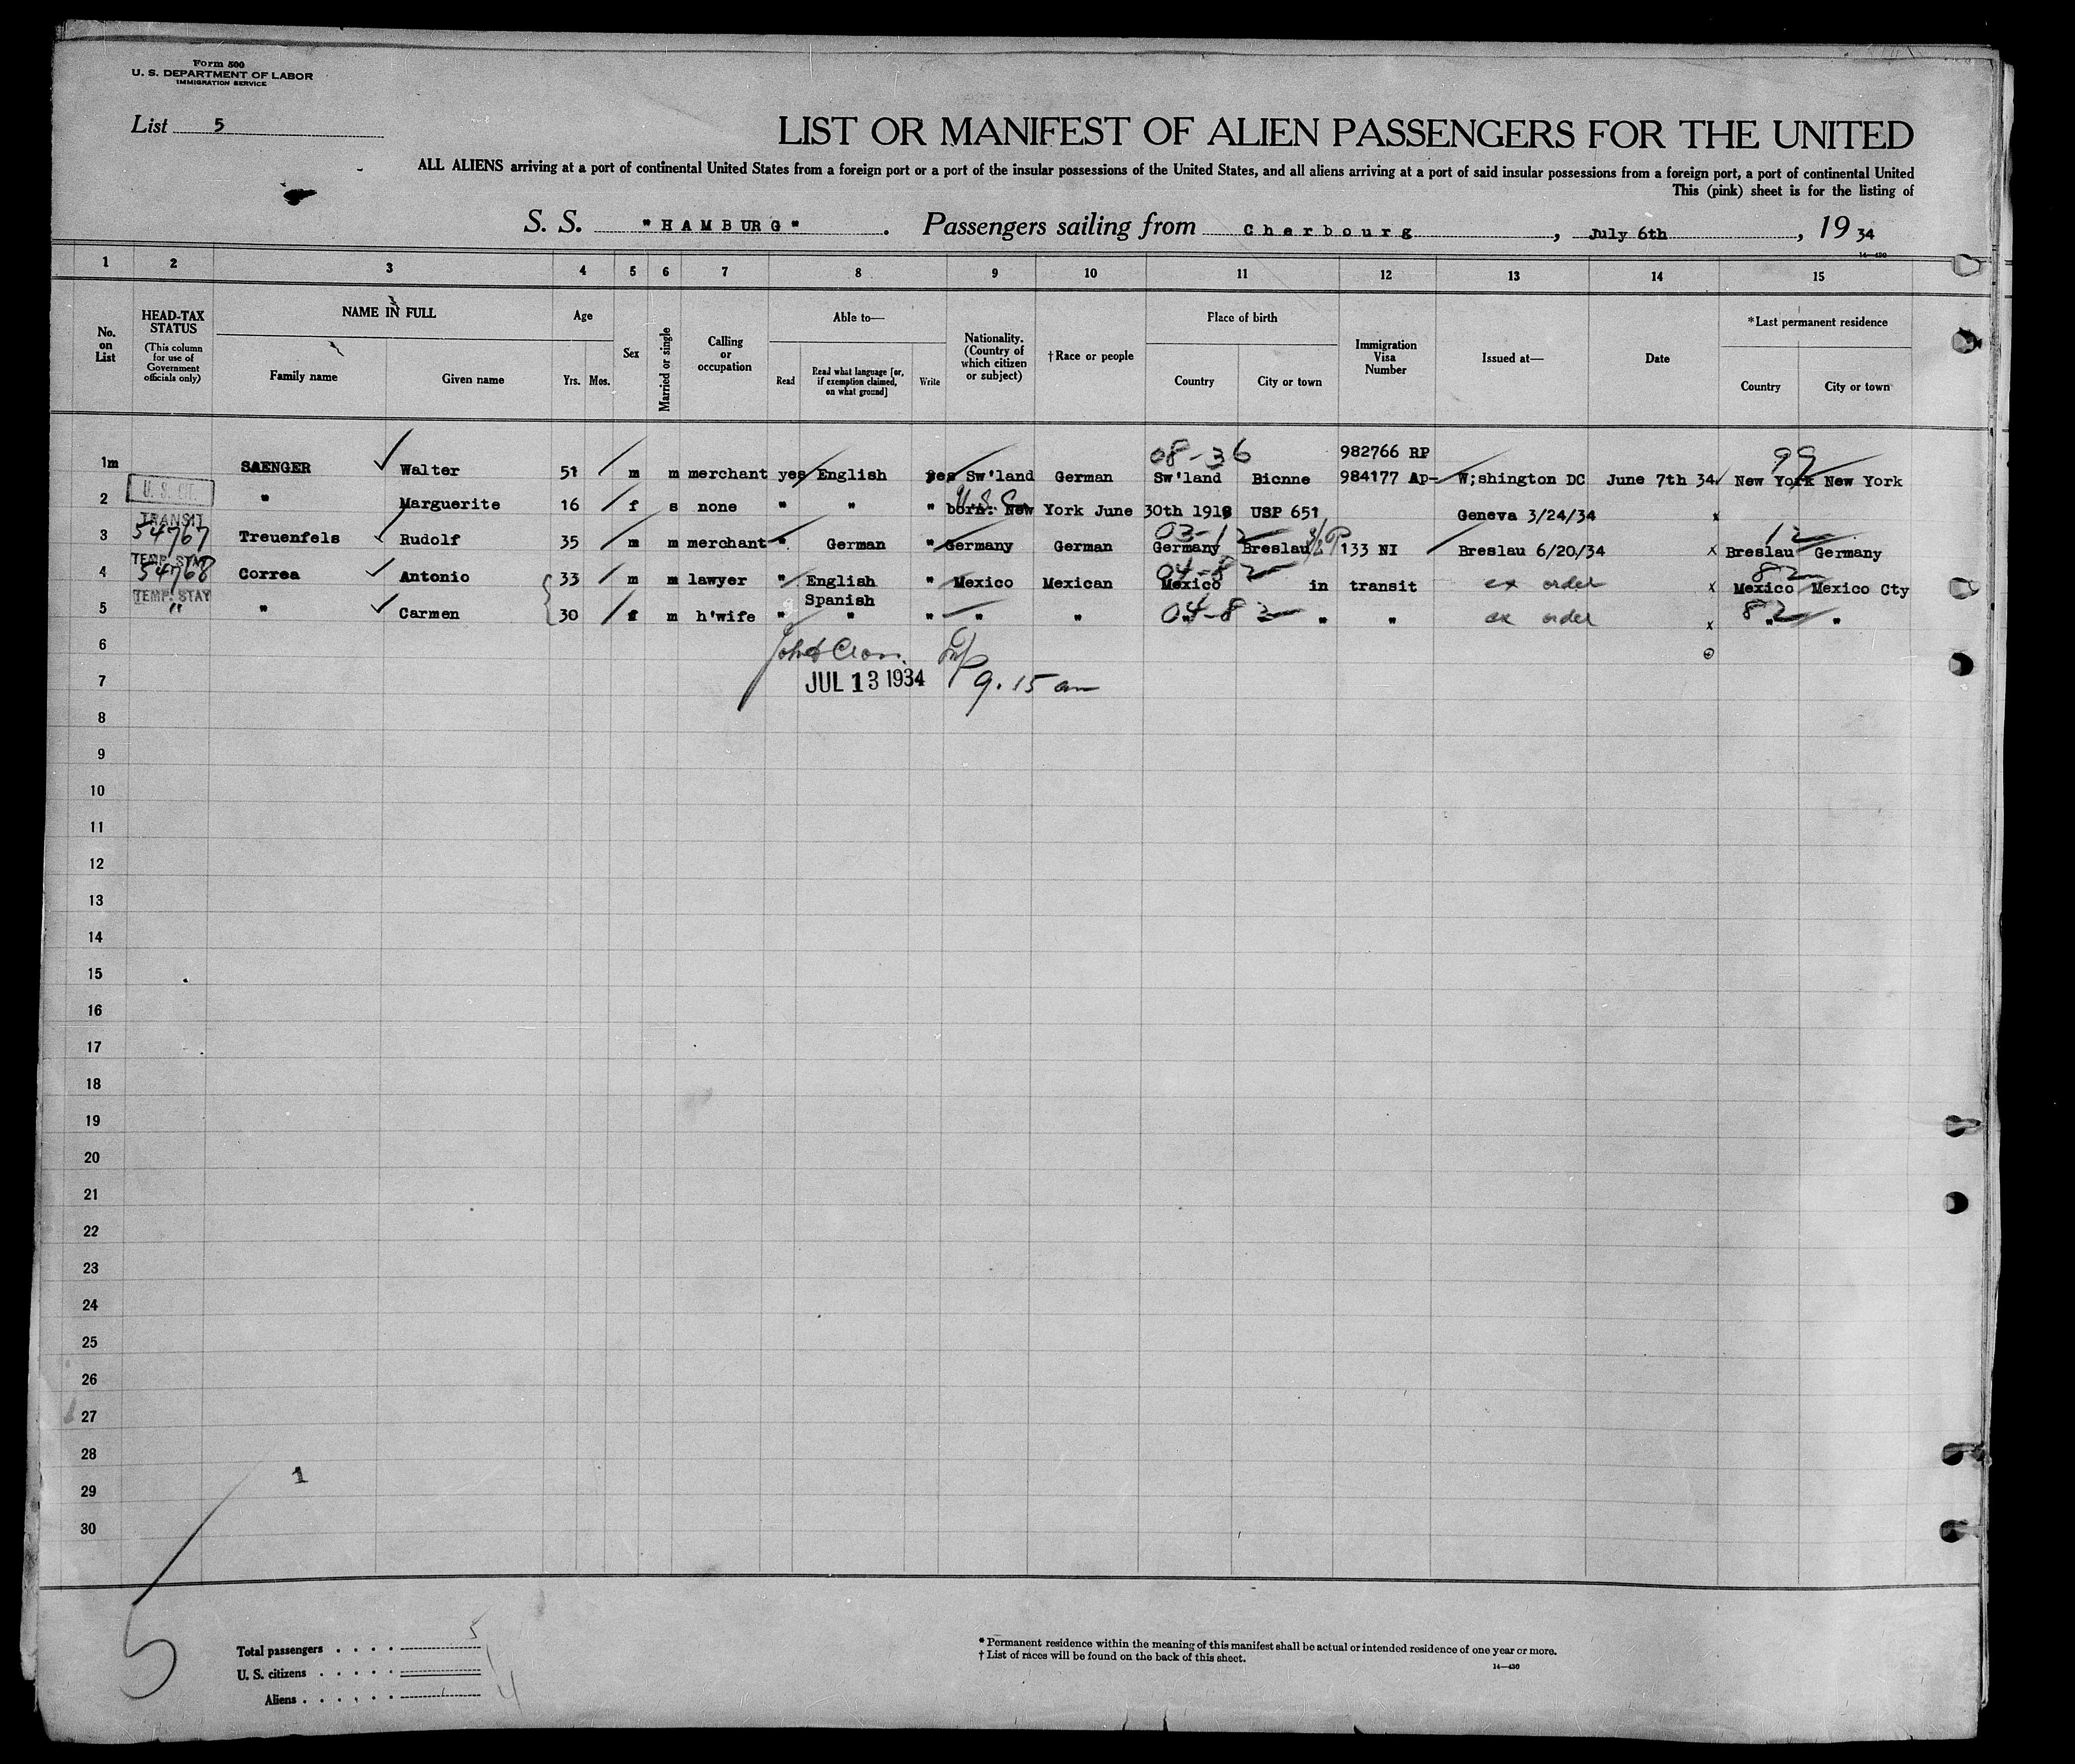 Form 500
U. S. DEPARTMENT OF LABOR
IMMIGRATION SERVICE
List 5
LIST OR MANIFEST OF ALIEN PASSENGERS FOR THE UNITED
ALL ALIENS arriving at a port of continental United States from a foreign port or a port of the insular possessions of the United States, and all aliens arriving at a port of said insular possessions from a foreign port, a port of continental United
This (pink) sheet is for the listing of
S. S. "HAMBURG". Passengers sailing from Cherbourg, July 6th, 19 34
14—430
1 2 3 4 5 6 7 8 9 10 11 12 13 14 15
No. on List
HEAD-TAX STATUS
(This column for use of Government officials only)
NAME IN FULL
Family name Given name
Age
Yrs. Mos.
Sex
Married or single
Calling or occupation
Able to—
Read Read what language [or, if exemption claimed, on what ground] Write
Nationality. (Country of which citizen or subject)
†Race or people
Place of birth
Country City or town
Immigration Visa Number
Issued at—
Date
*Last permanent residence
Country City or town
08-36 982766 RP 99
1m SAENGER Walter 51 m m merchant yes English yes Sw'land German Sw'land Bienne 984177 Ap- W;shington DC June 7th 34 New York New York
U. S. CIT.
U.S.C.
2 " Marguerite 16 f s none " " " born: New York June 30th 1918 USP 651 Geneva 3/24/34 x
TRANSIT
54767 03-12 12
3 Treuenfels Rudolf 35 m m merchant " German " Germany German Germany Breslau 133 NI Breslau 6/20/34 x Breslau Germany
TEMP. STAY
54768 04-82 82
4 Correa Antonio 33 m m lawyer " English " Mexico Mexican Mexico in transit ex order x Mexico Mexico Cty
TEMP. STAY Spanish
5 " " Carmen 30 f m h'wife " " " " " 04-82 " " ex order x 82 " "
6
7 JUL 13 1934 9.15 am
8
9
10
11
12
13
14
15
16
17
18
19
20
21
22
23
24
25
26
27
28
29 1
30
5
Total passengers 5
U. S. citizens 1
Aliens 4
* Permanent residence within the meaning of this manifest shall be actual or intended residence of one year or more.
† List of races will be found on the back of this sheet.
14—430